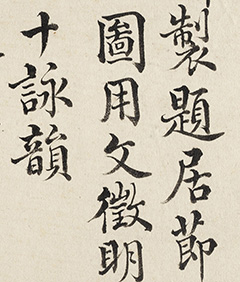 製題居節
圖用文徵明
十詠韻